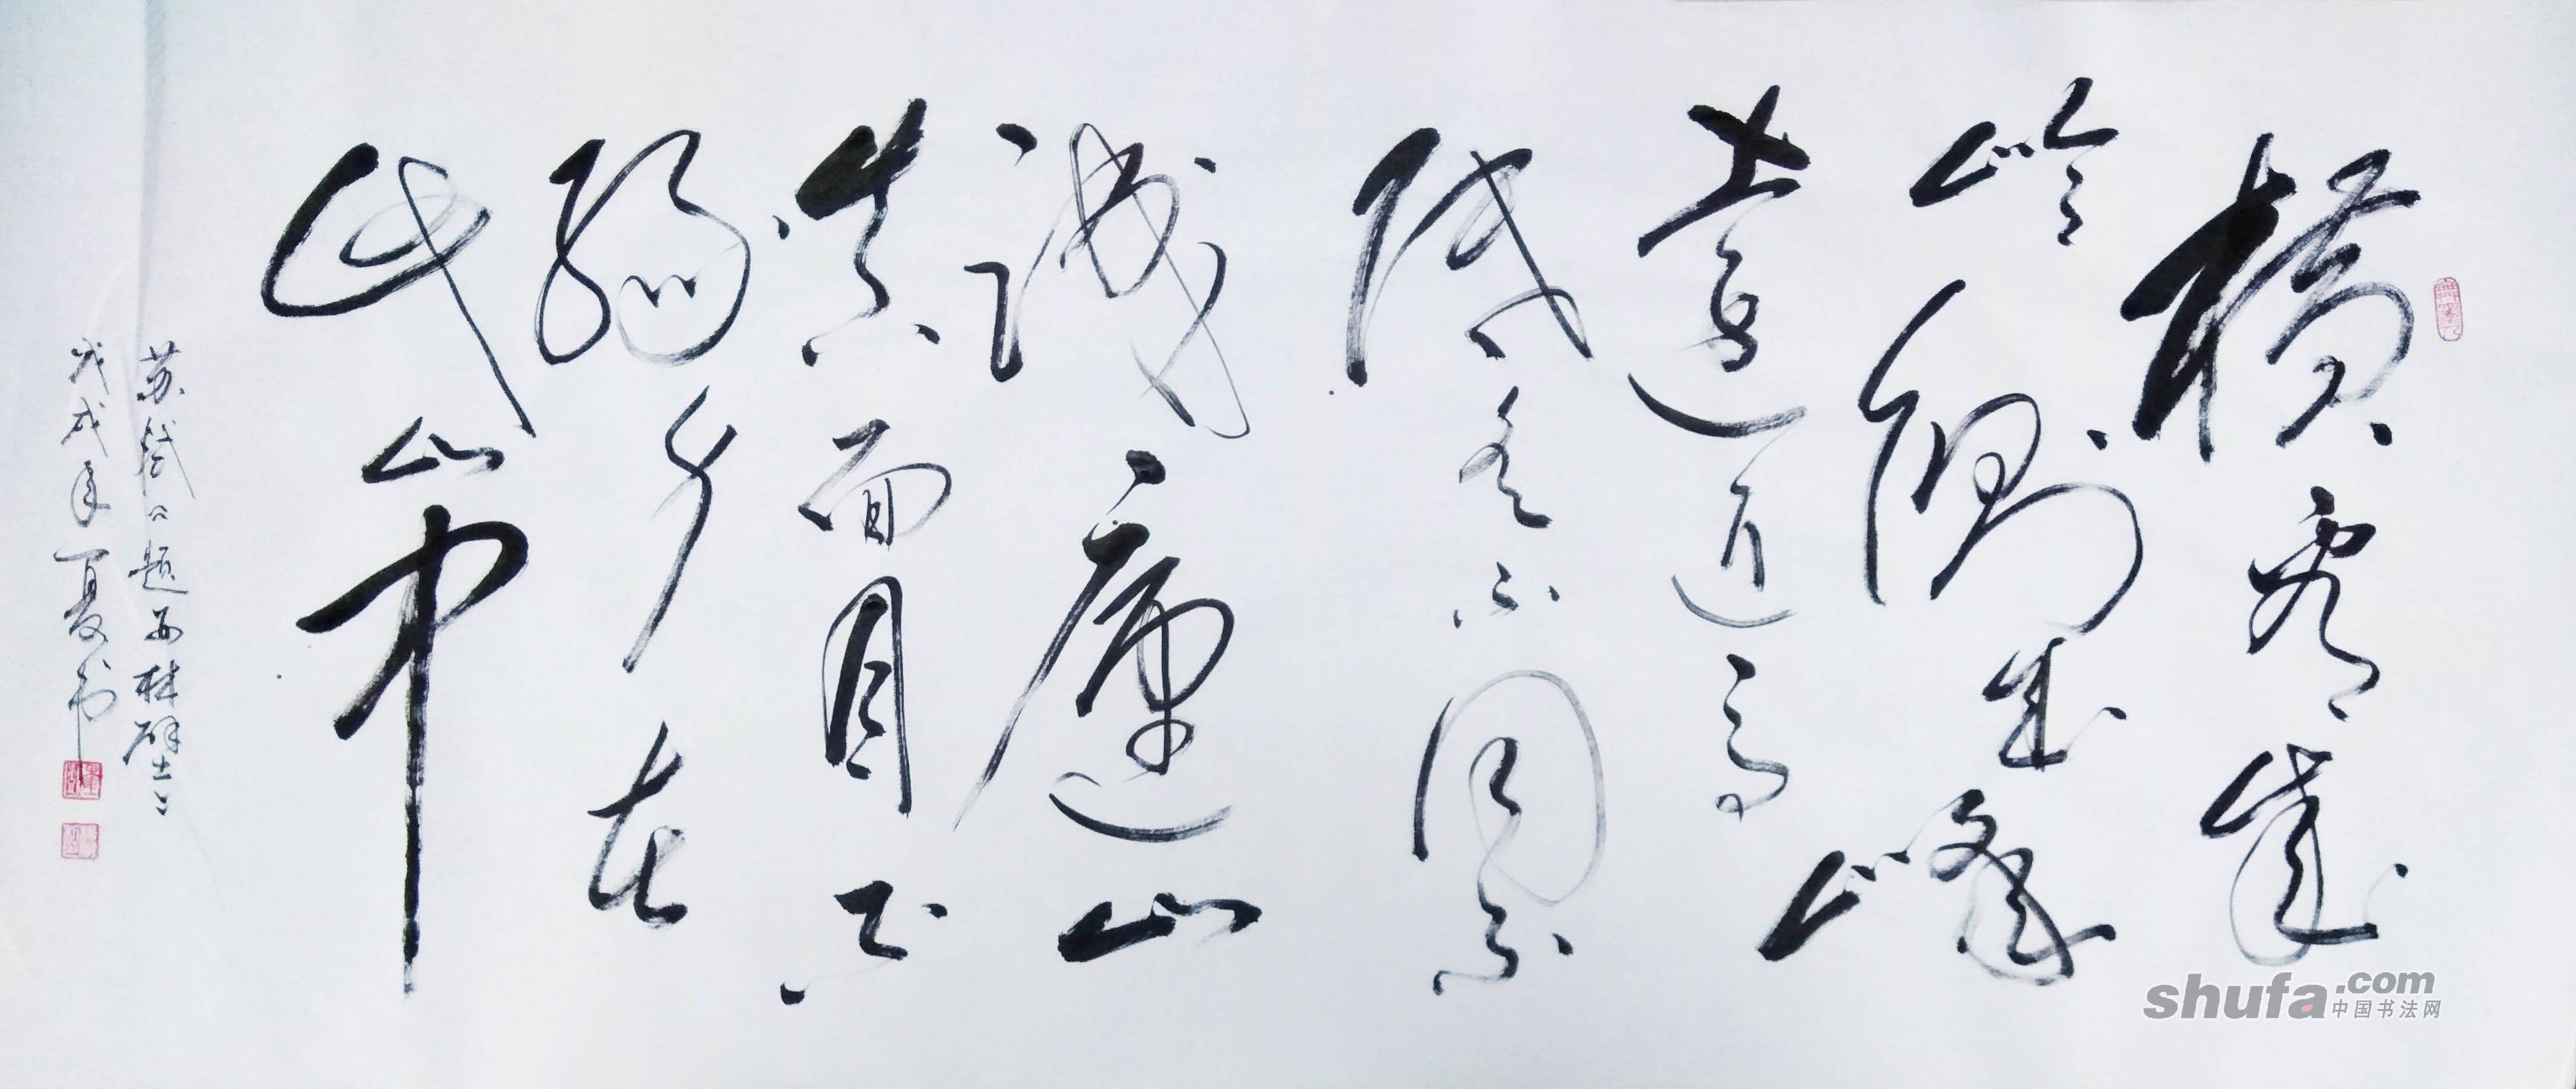 横看成
岭侧成峰
遠近高
低各不同不
識廬山
真面目只
緣身在
此山中
苏轼《题西林壁》
戊戌年夏书
shufa.com
中国书法网